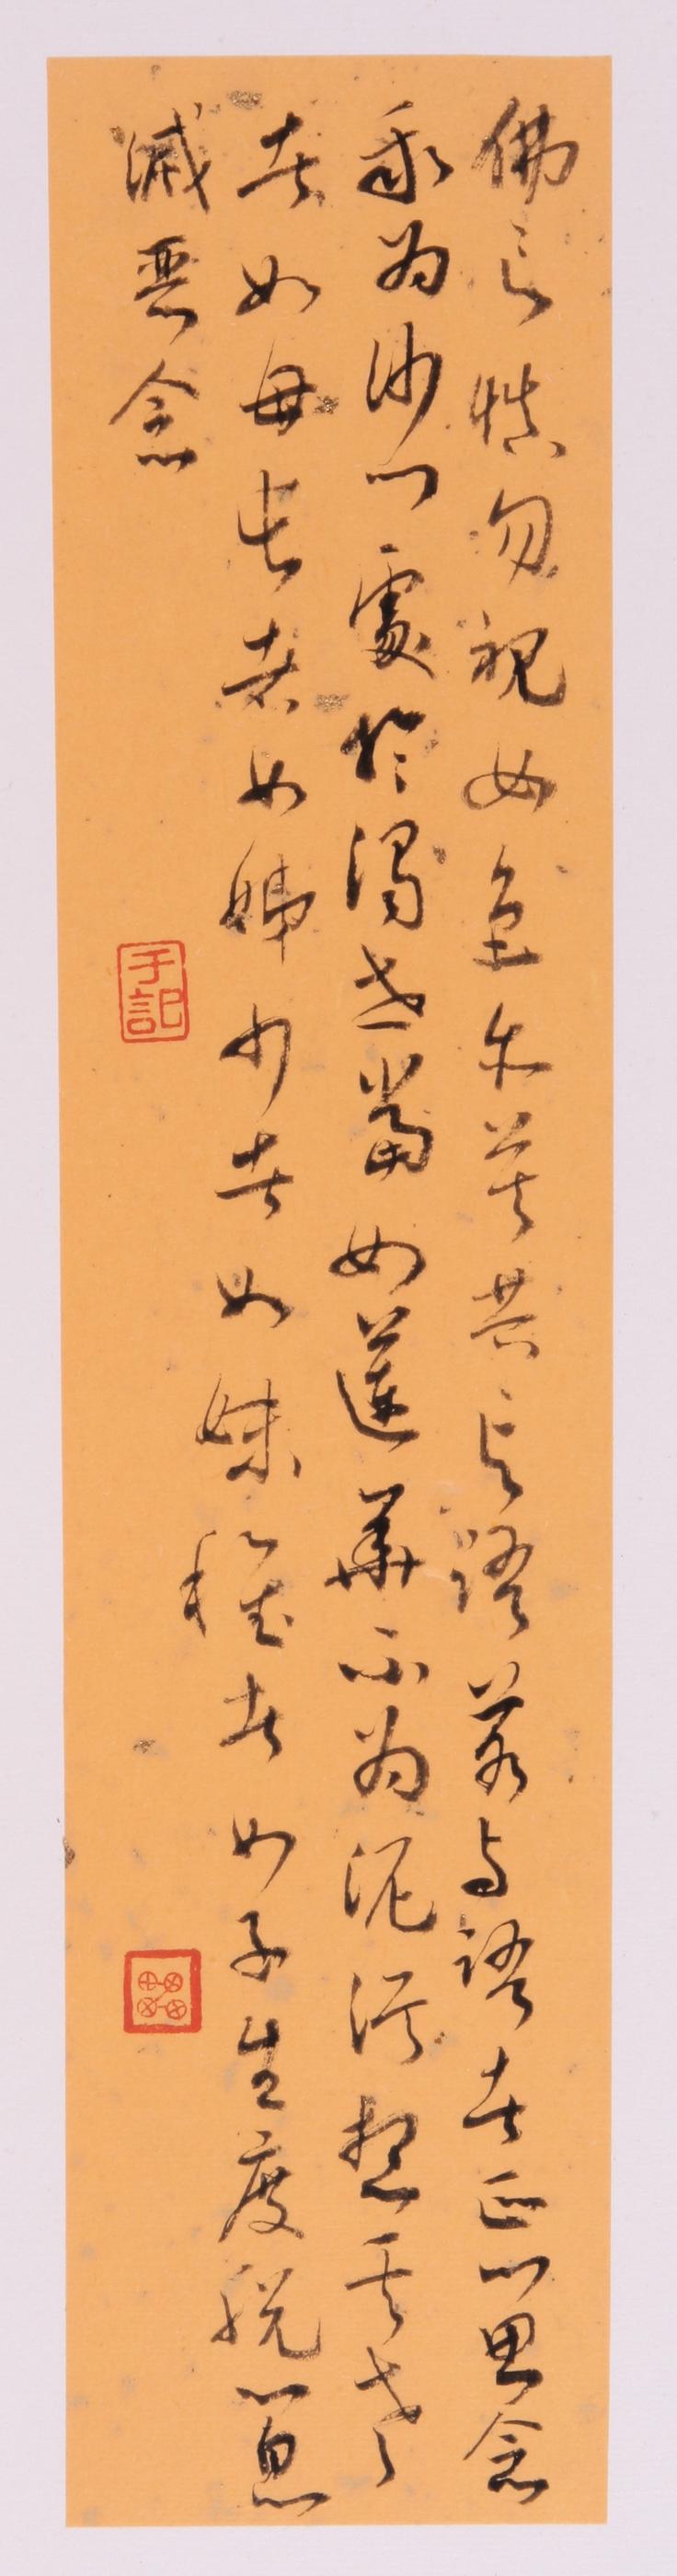 佛言慎勿視女色亦莫共言語若与語者正心思念
我為沙門處於濁世當如蓮華不為泥污想其老
者如母長者如姊少者如妹稚者如子生度脫心息
滅惡念
手記